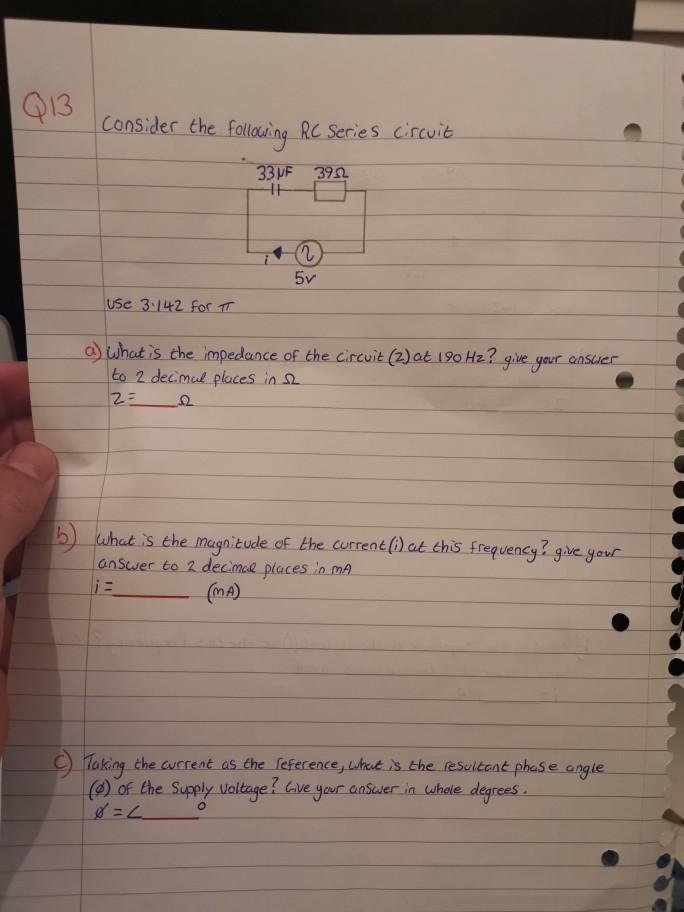 Q13
Consider the following RC Series circuit
33µF 39Ω
i
5v
use 3.142 for π
a) What is the impedance of the circuit (Z) at 190 Hz? give your answer
to 2 decimal places in Ω
Z=____Ω
b) What is the magnitude of the current (i) at this frequency? give your
answer to 2 decimal places in mA
i=________ (mA)
c) Taking the current as the reference, what is the resultant phase angle
(ø) of the Supply voltage? Give your answer in whole degrees.
ø=∠_____°